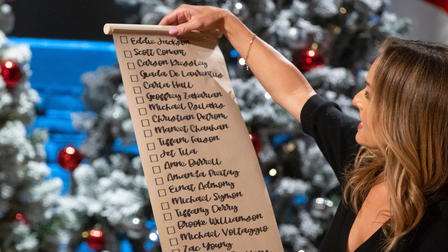 Eddie Jackson
Scott Conant
Carson Kressley
Giada De Laurentiis
Carla Hall
Geoffrey Zakarian
Michael Voltaggio
Christian Petroni
Maneet Chauhan
Tiffani Faison
Jet Tila
Anne Burrell
Amanda Freitag
Eric Adjepong
Michael Symon
Tiffany Derry
Brooke Williamson
Zac Young